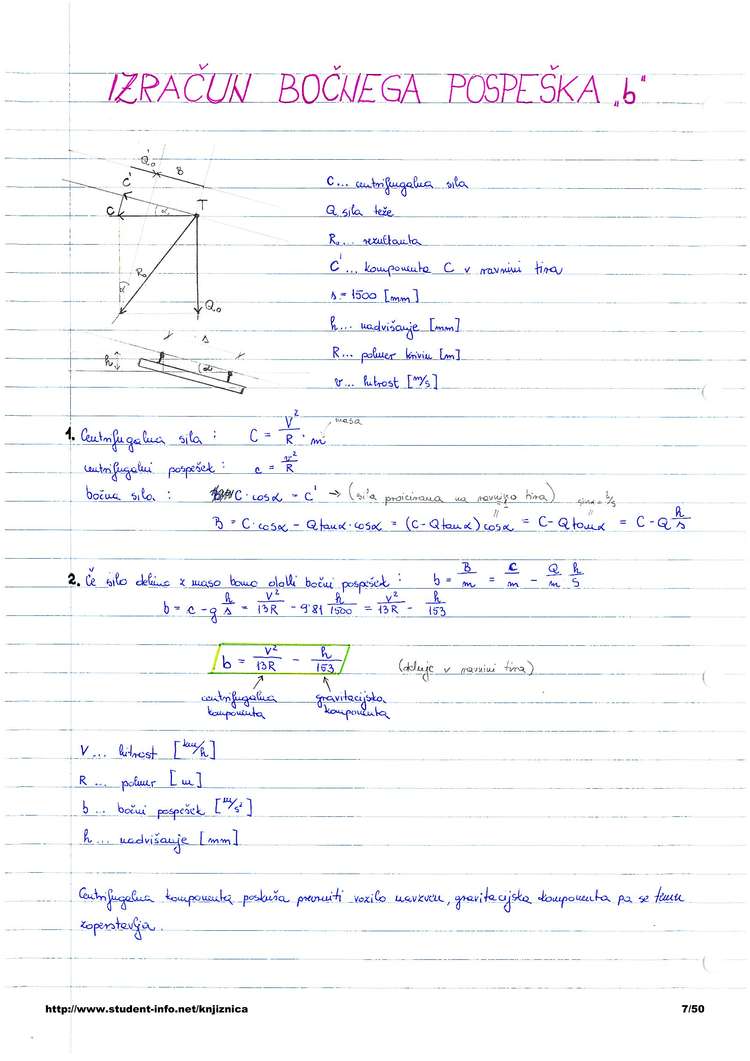 IZRAČUN BOČNEGA POSPEŠKA „b"
Q'₀ B
C' T
C α
R₀
α
Q₀
s
h α
C... centrifugalna sila
Q sila teže
R₀... rezultanta
C'... komponenta C v ravnini tira
s = 1500 [mm]
h... nadvišanje [mm]
R... polmer krivin [m]
v... hitrost [m/s]
1. Centrifugalna sila : C = V²/R · m masa
centrifugalni pospešek : c = v²/R
bočna sila : C·cosα = C' → (sila proicirana na ravnino tira) sinα = h/s
B = C·cosα - Qtanα·cosα = (C-Qtanα)cosα = C-Qtanα = C-Q h/s
2. Če silo delimo z maso bomo dobili bočni pospešek : b = B/m = C/m - Q/m h/s
b = c-g h/s = V²/13R - 9'81 h/1500 = V²/13R - h/153
b = V²/13R - h/153 (deluje v ravnini tira)
centrifugalna komponenta
gravitacijska komponenta
V... hitrost [km/h]
R ... polmer [m]
b ... bočni pospešek [m/s²]
h... nadvišanje [mm]
Centrifugalna komponenta poskuša prevrniti vozilo navzven, gravitacijska komponenta pa se temu
zoperstavlja.
http://www.student-info.net/knjiznica
7/50